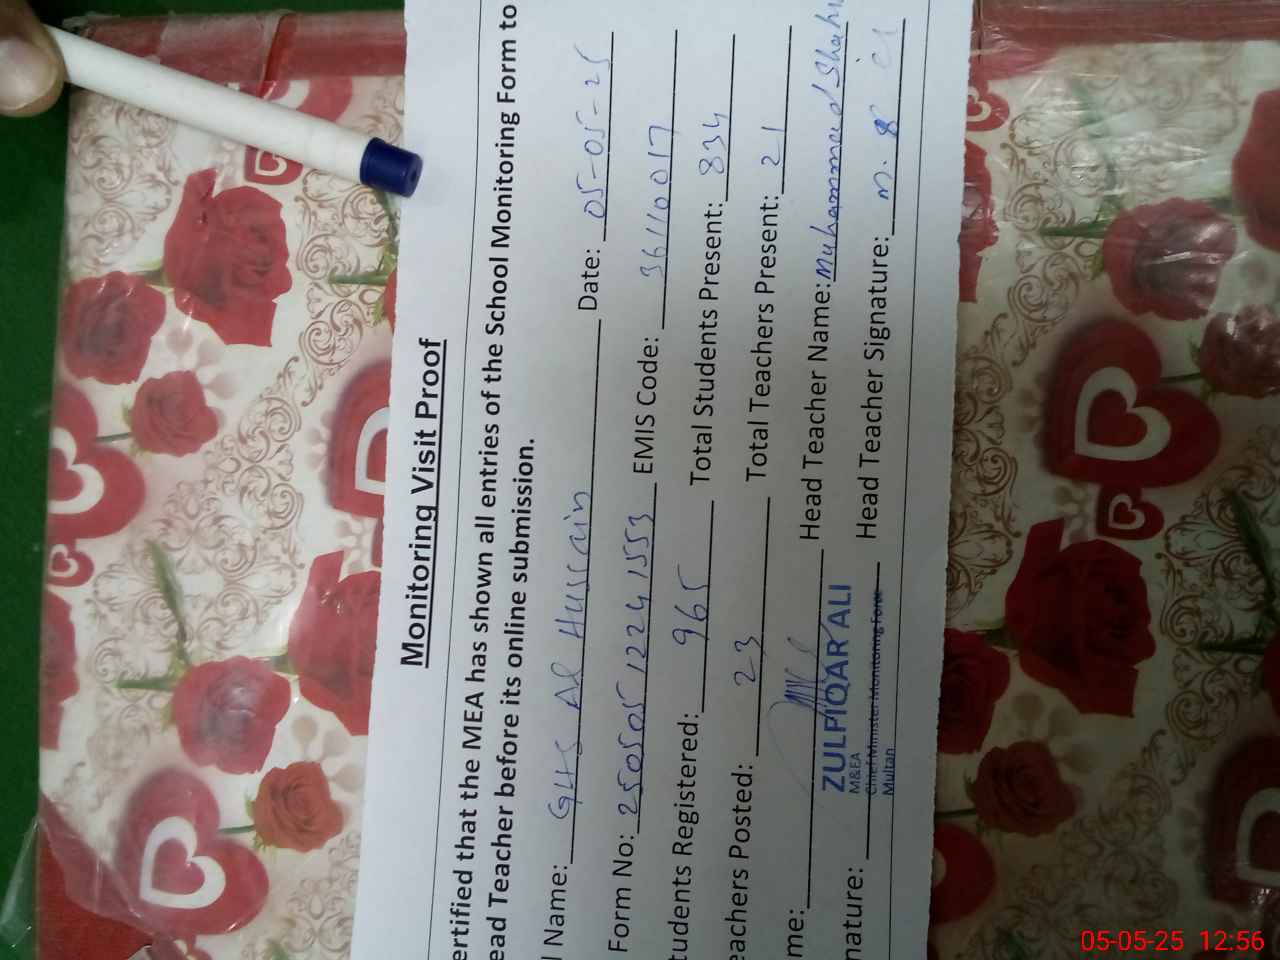 Monitoring Visit Proof
ertified that the MEA has shown all entries of the School Monitoring Form to
ead Teacher before its online submission.
l Name: GHS Al Hussain Date: 05-05-25
Form No: 25050512241553 EMIS Code: 36110017
tudents Registered: 965 Total Students Present: 834
eachers Posted: 23 Total Teachers Present: 21
me: Head Teacher Name: Muhammad Shahi
ZULFIQAR ALI
M&EA
Chief Minister Monitoring Force
Multan
nature: Head Teacher Signature:
05-05-25 12:56